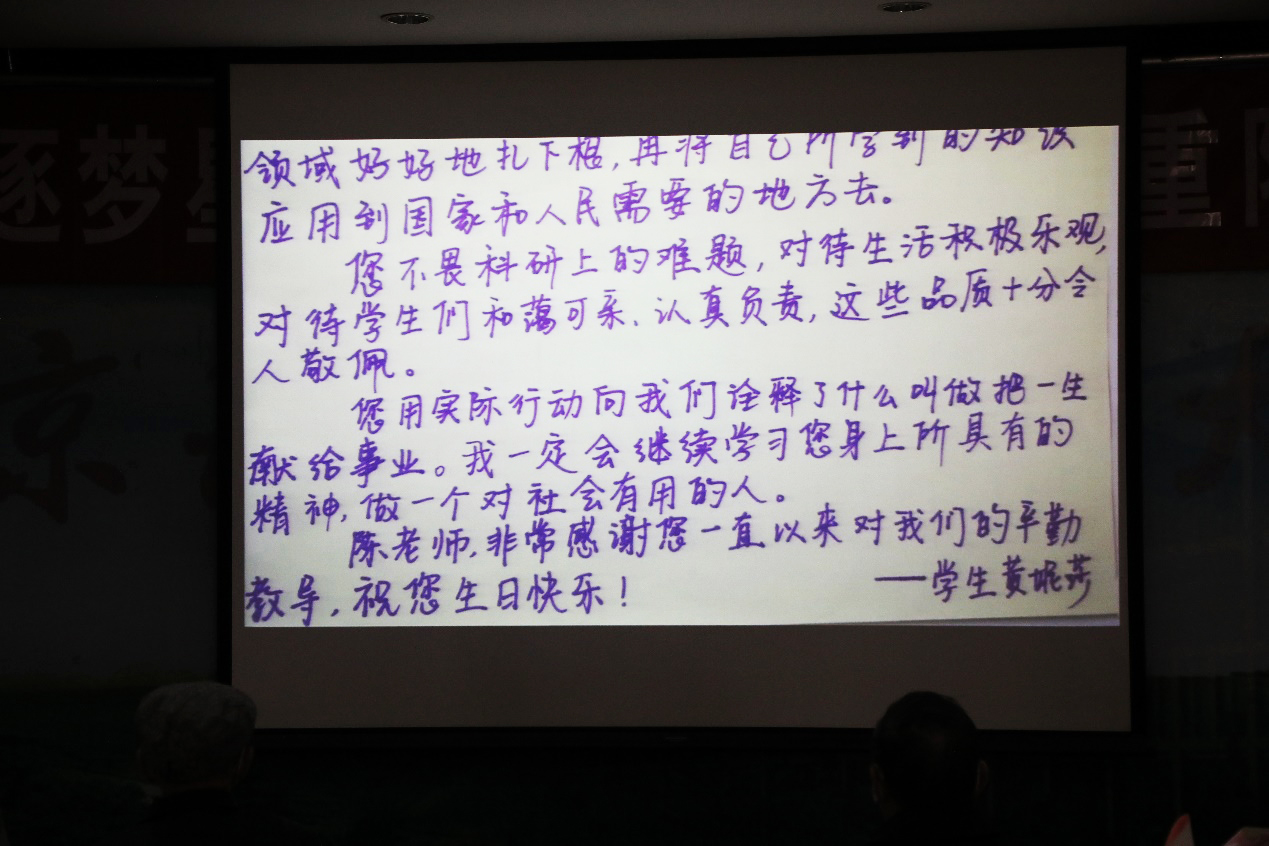 逐梦星
重
领域好好地扎下根,再将自己所学到的知识
应用到国家和人民需要的地方去。
您不畏科研上的难题,对待生活积极乐观,
对待学生们和蔼可亲、认真负责,这些品质十分令
人敬佩。
您用实际行动向我们诠释了什么叫做把一生
献给事业。我一定会继续学习您身上所具有的
精神,做一个对社会有用的人。
陈老师,非常感谢您一直以来对我们的辛勤
教导,祝您生日快乐!
——学生黄妮莎
京